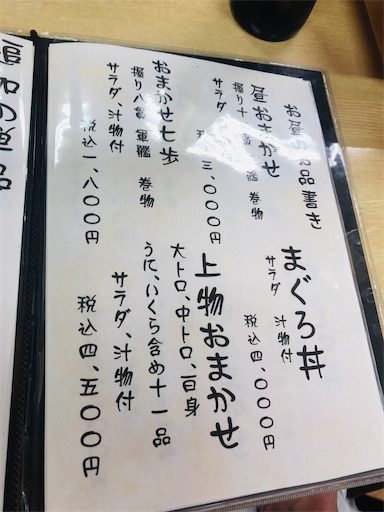 お昼のお品書き
昼おまかせ
握り十 軍艦 巻物
サラダ
税 三、〇〇〇円
おまかせ七歩
握り八貫 軍艦 巻物
サラダ、汁物付
税込一、八〇〇円
まぐろ丼
サラダ 汁物付
税込四、〇〇〇円
上物おまかせ
大トロ、中トロ、白身
うに、いくら含め十一品
サラダ、汁物付
税込四、五〇〇円
追加の